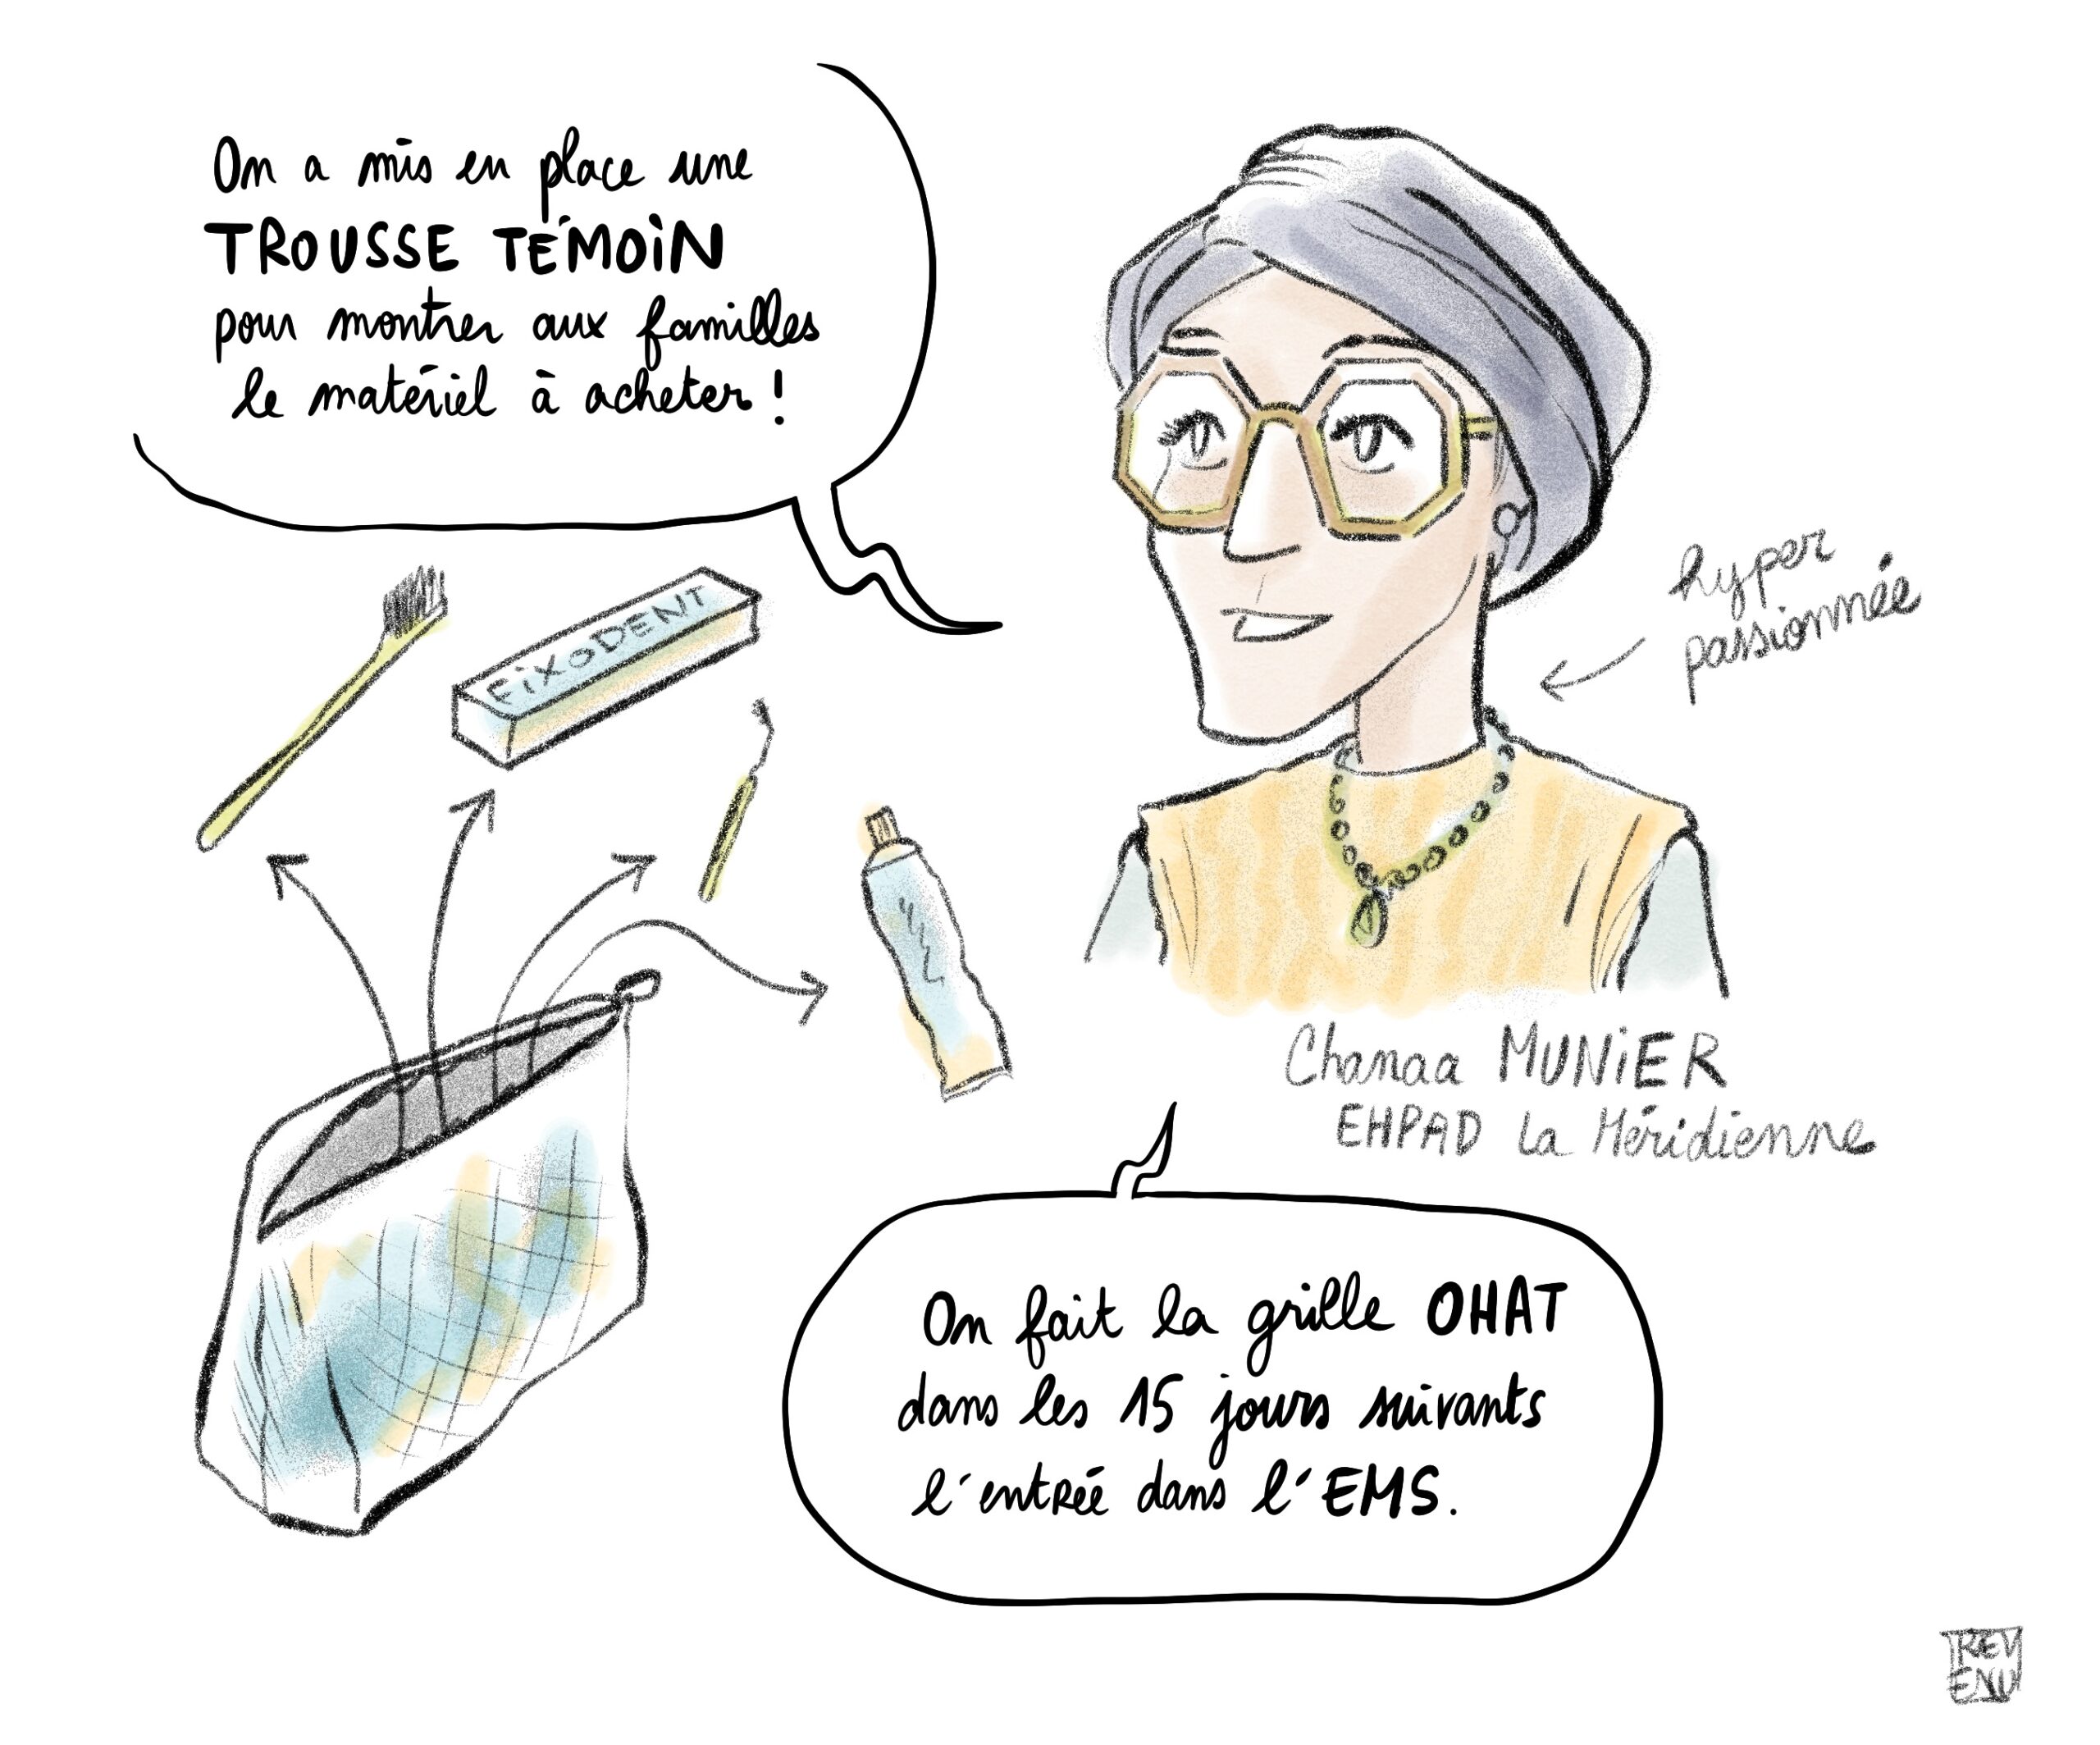 On a mis en place une
TROUSSE TÉMOIN
pour montrer aux familles
le matériel à acheter !
FIXODENT
hyper
passionnée
Chanaa MUNIER
EHPAD La Méridienne
On fait la grille OHAT
dans les 15 jours suivants
l'entrée dans l'EMS.
TREV
ENU